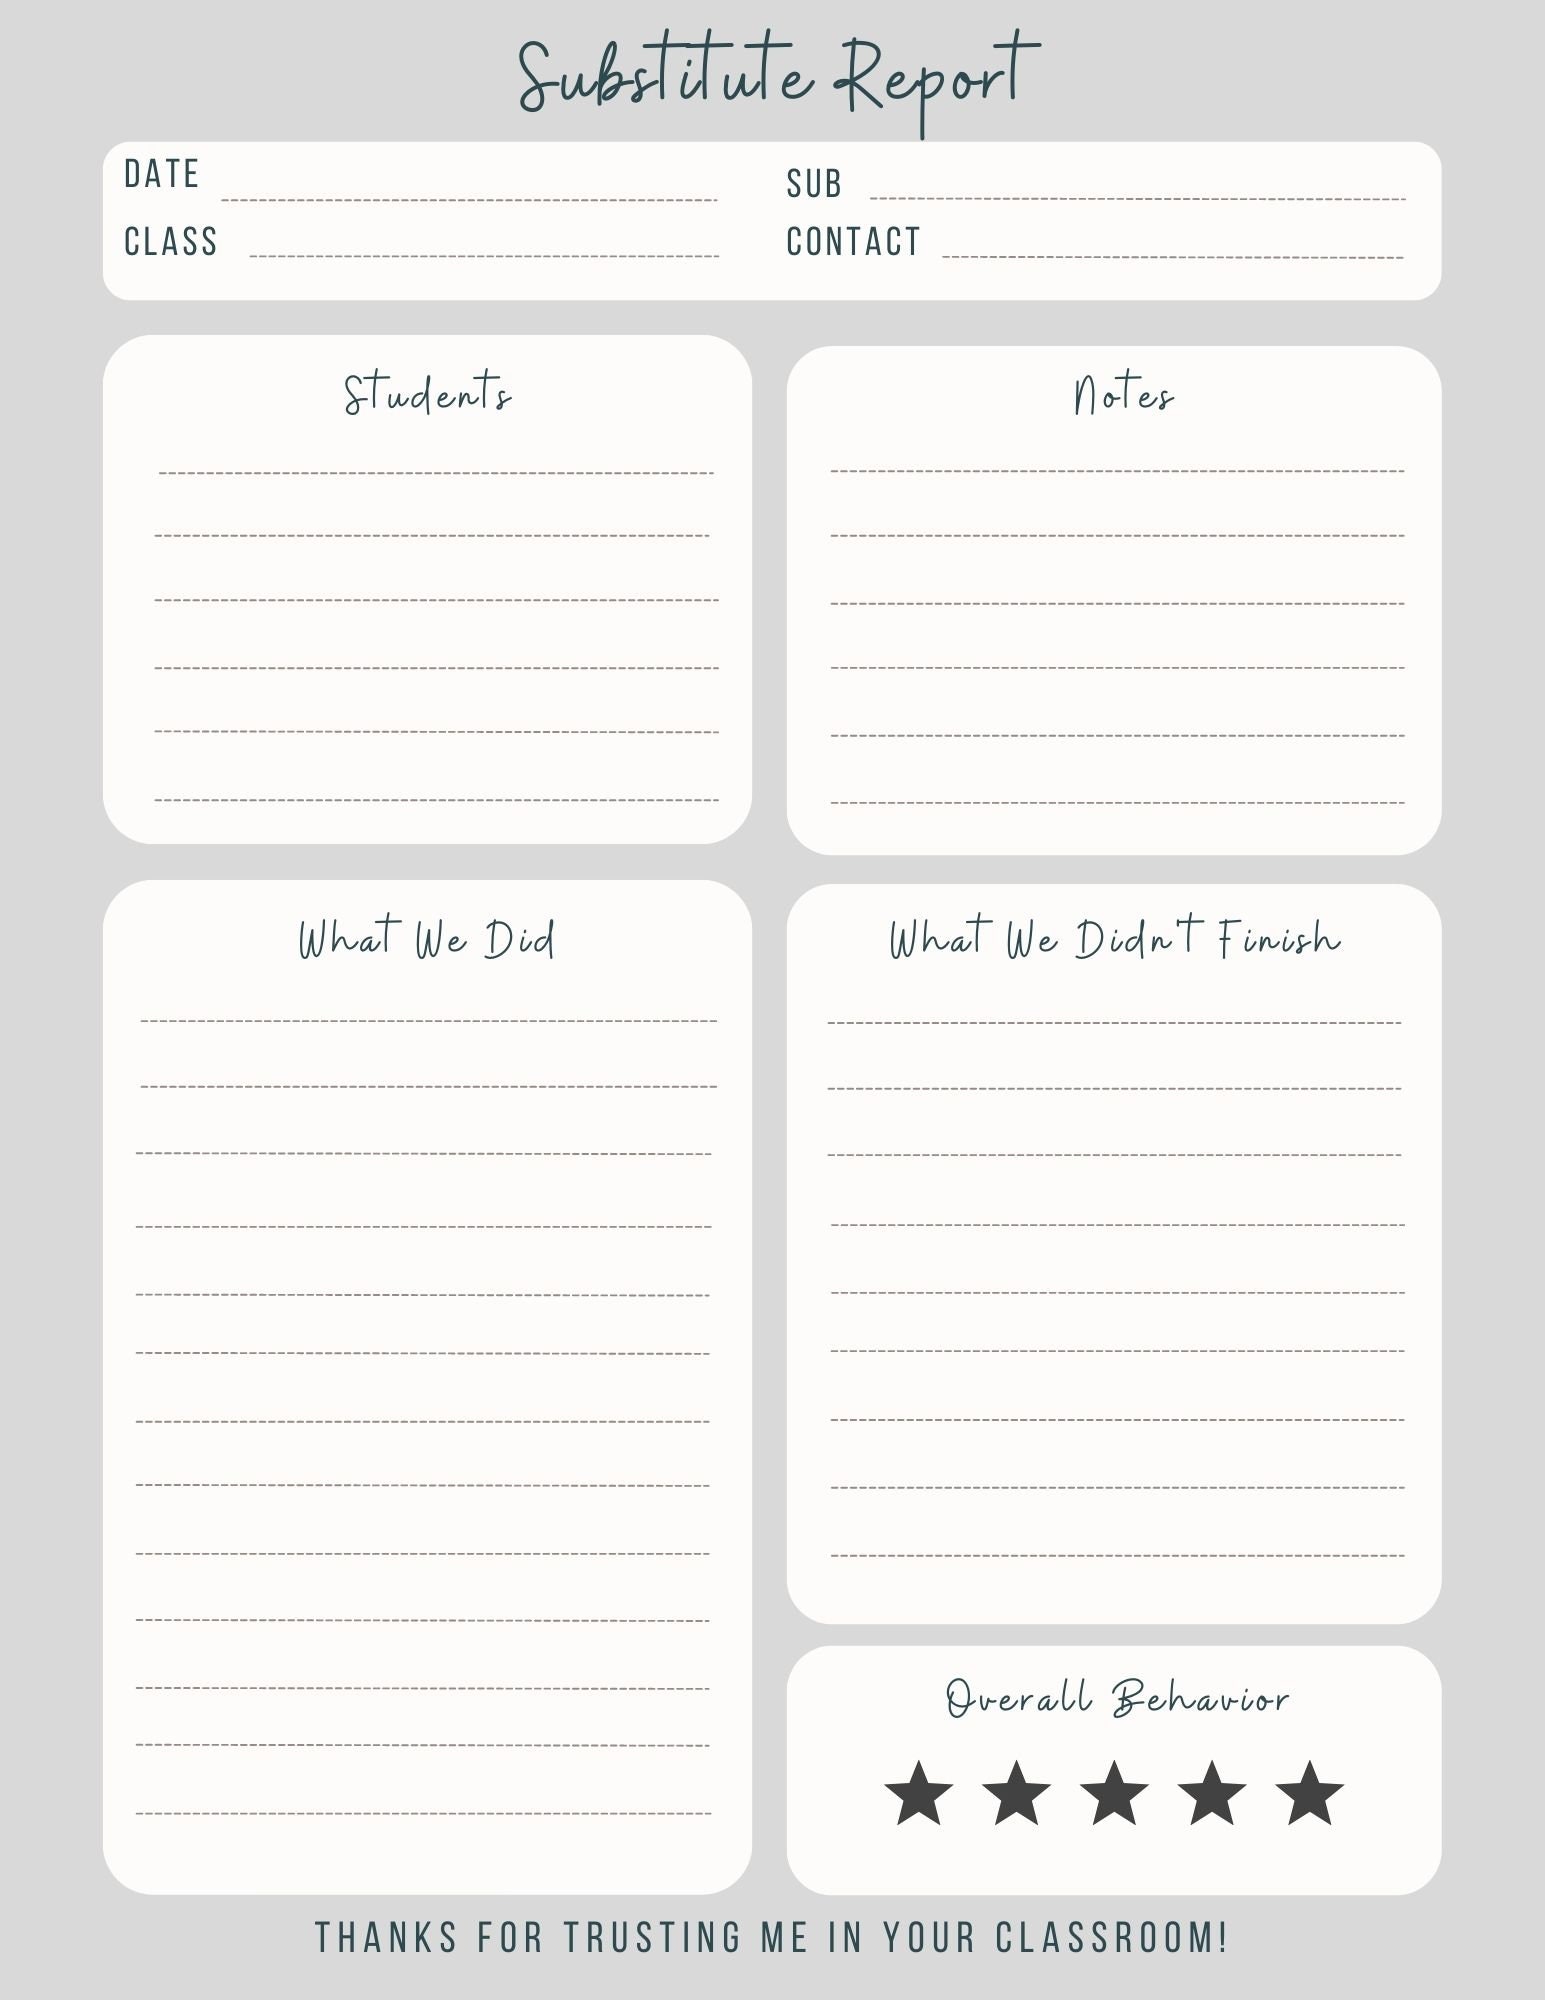 Substitute Report
DATE
SUB
CLASS
CONTACT
Students
Notes
What We Did
What We Didn't Finish
Overall Behavior
THANKS FOR TRUSTING ME IN YOUR CLASSROOM!